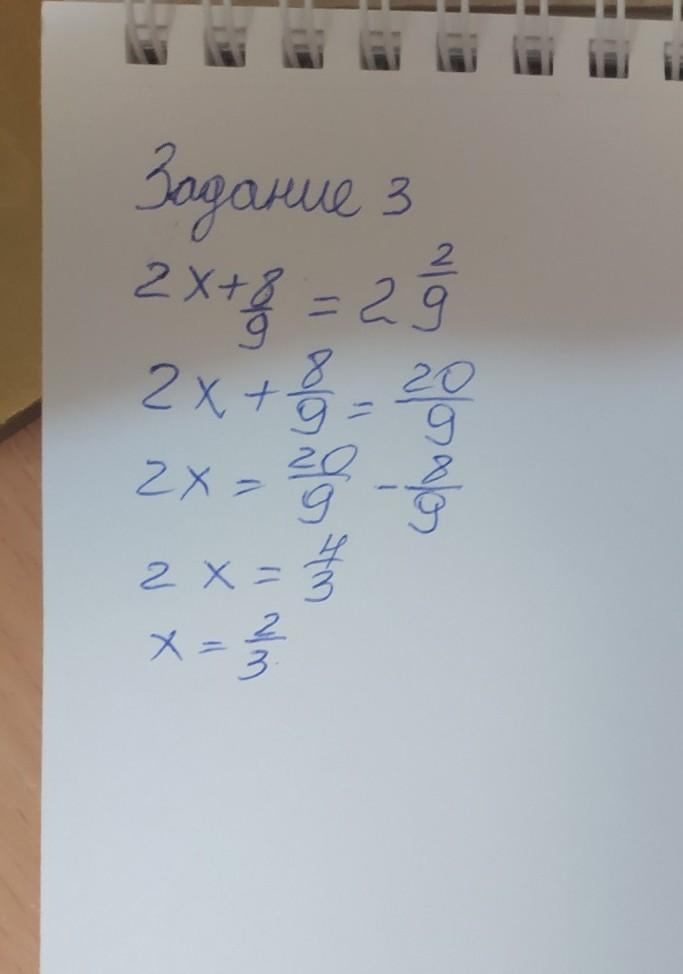 Задание 3
2x + 8/9 = 2 2/9
2x + 8/9 = 20/9
2x = 20/9 - 8/9
2x = 4/3
x = 2/3